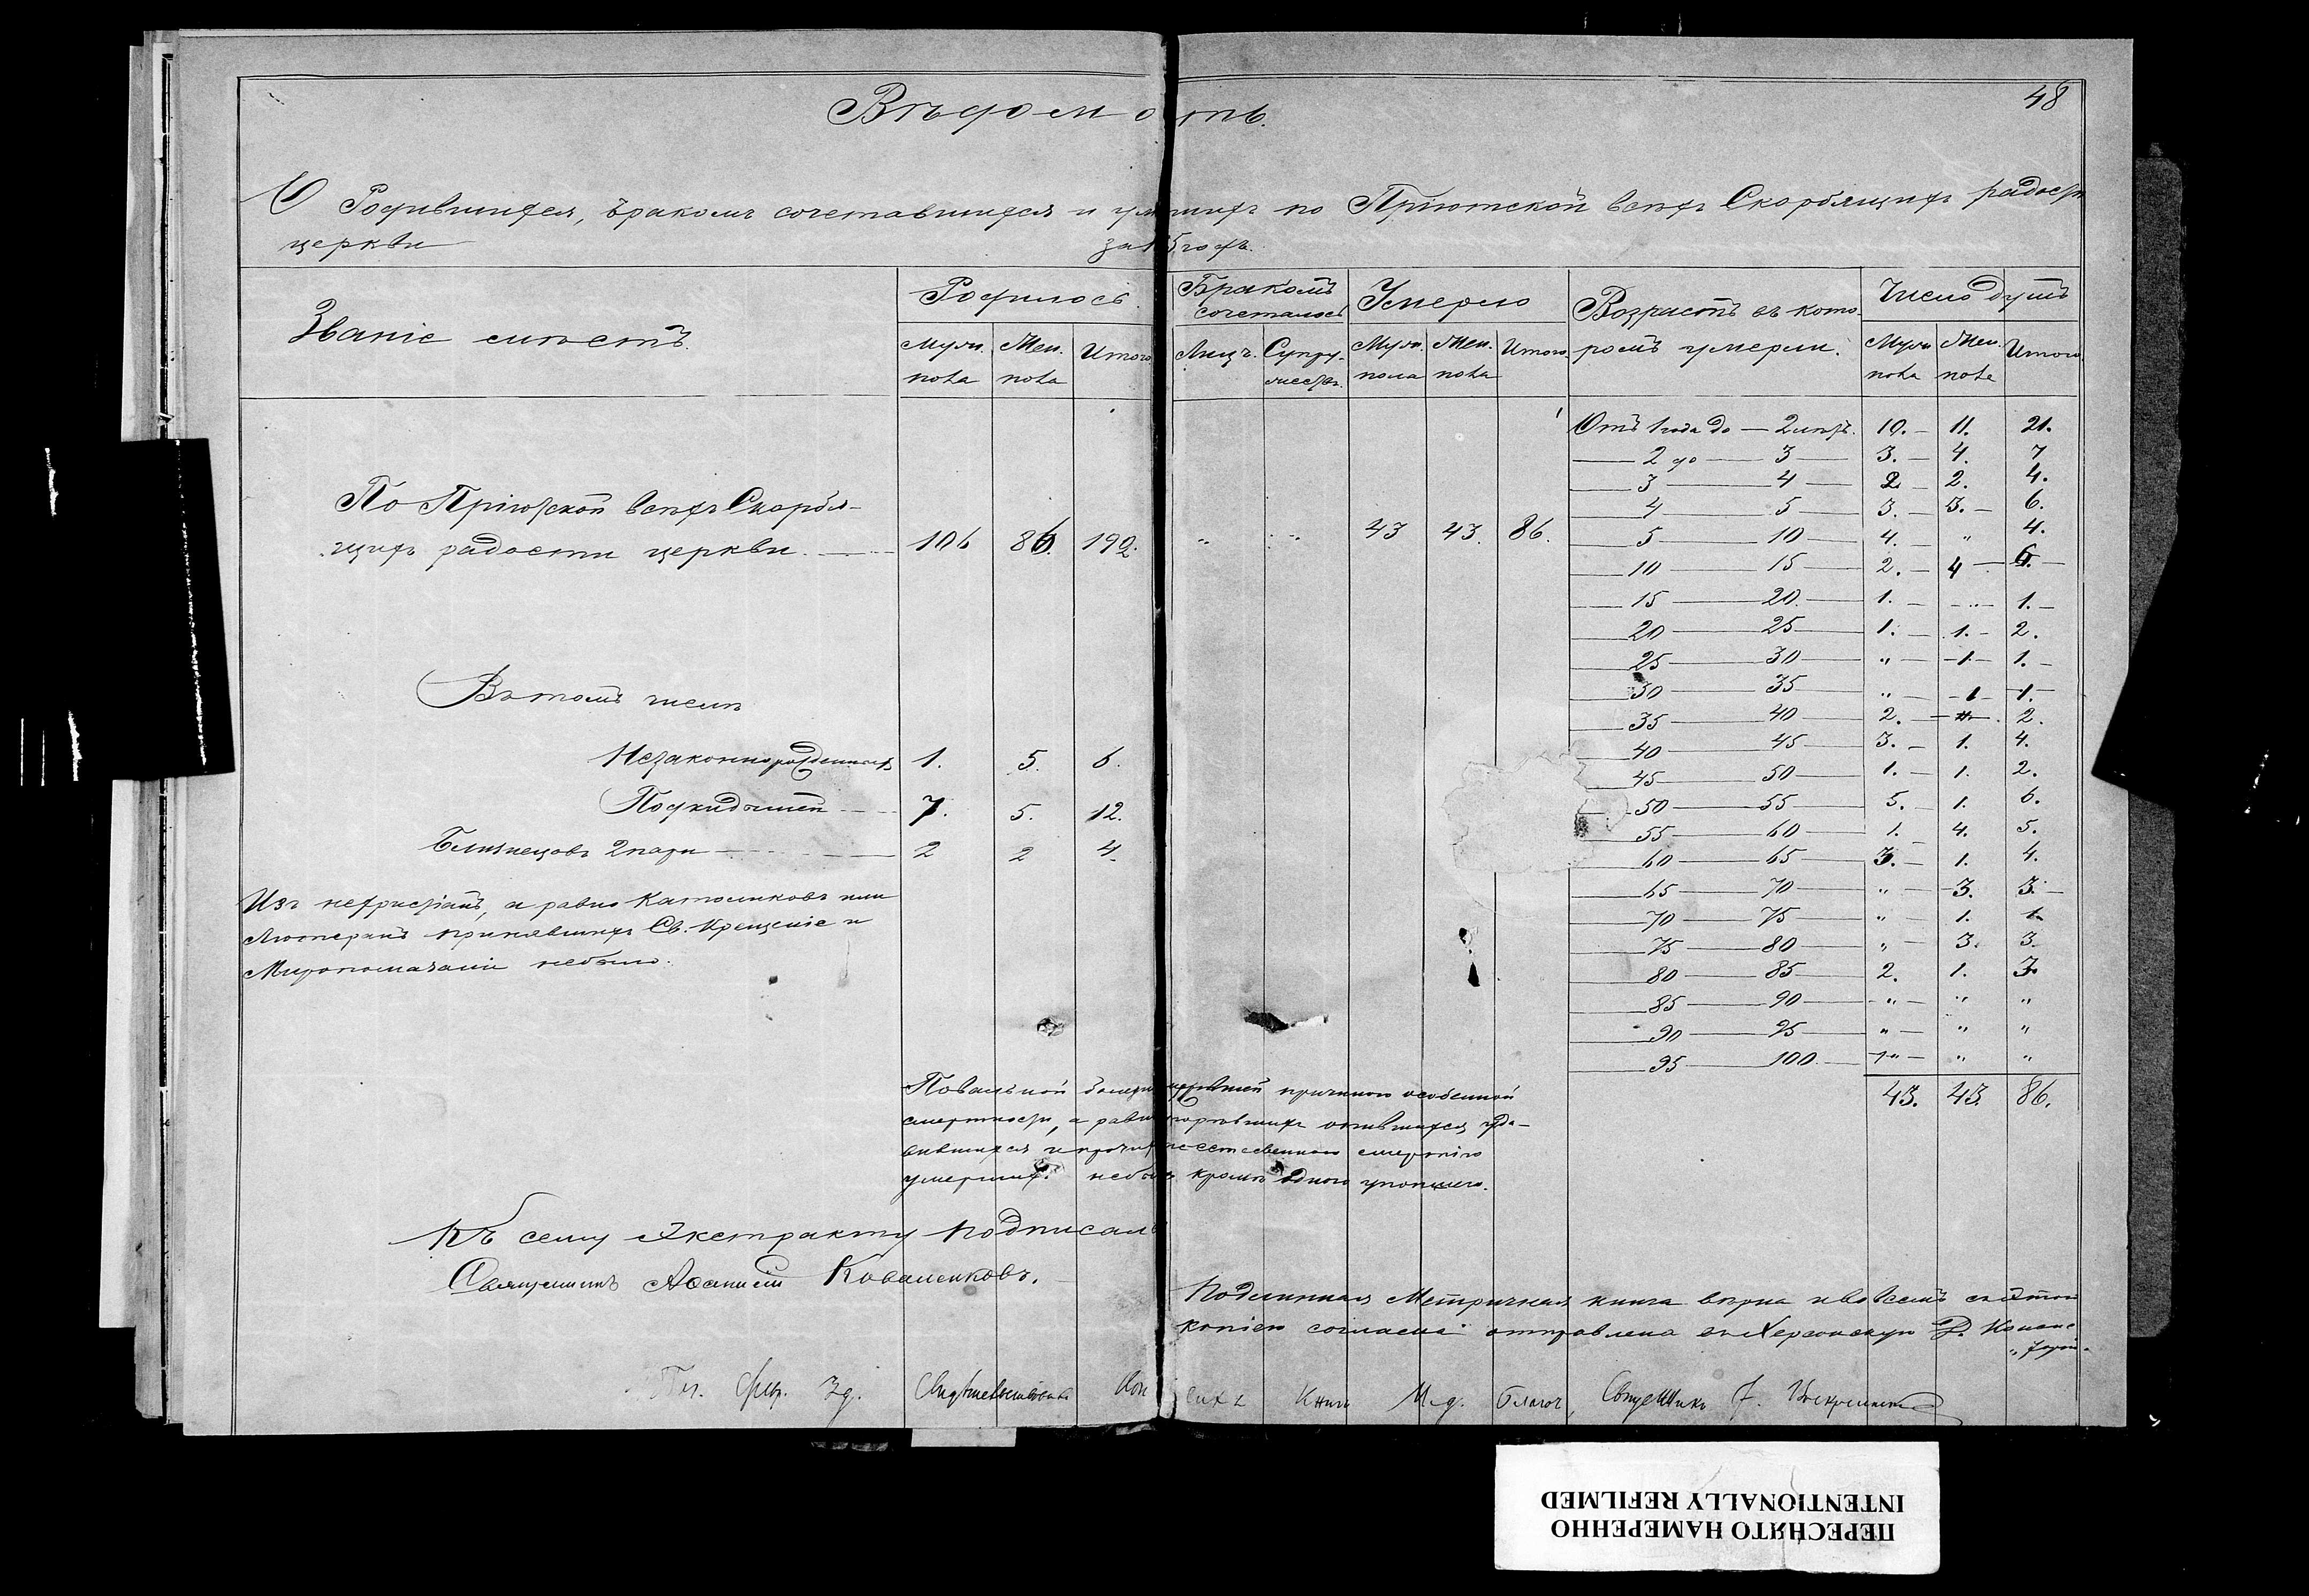 48
Вѣдомость.
О Родившихся, бракомъ сочетавшихся и умершихъ по Пріютской всѣхъ Скорбящихъ радости
церкви за 5 годъ.
Званіе мѣстъ. Родилось. Бракомъ сочеталось Умерло Возрастъ въ которомъ умерли. Число душъ
Муж. пола Жен. пола Итого Лицъ. Супружествъ. Муж. пола Жен. пола Итого. Муж. пола Жен. пола Итого
Отъ 1 года до — 2 лѣтъ. 10. 11. 21.
2 до 3 3. 4. 7
3 4 2 2. 4.
4 5 3. 3. 6.
По Пріютской всѣхъ Скорбя-
щихъ радости церкви. 106 86. 192. „ „ 43 43. 86.
5 10 4. „ 4.
10 15 2. 4 6.
15 20. 1. „ 1.
20 25 1. 1. 2.
25 30 „ 1. 1.
30 35 „ 1 1.
35 40 2. „ 2.
40 45 3. 1. 4.
45 50 1. 1. 2.
50 55 5. 1. 6.
55 60 1. 4. 5.
60 65 3. 1. 4.
65 70 „ 3. 3.
70 75 „ 1. 1.
75 80 „ 3. 3.
80 85 2. 1. 3.
85 90 „ „ „
90 95 „ „ „
95 100. „ „ „
43. 43. 86.
Въ томъ числѣ
Незаконнорожденныхъ 1. 5. 6.
Подкидышей 7. 5. 12.
Близнецовъ 2 пары 2 2 4.
Изъ нехристіанъ, а равно Католиковъ или
Лютеранъ принявшихъ Св. Крещеніе и
Миропомазаніе небыло.
Повальной болезни причиною особенной
смертности, а равно опившихся уда-
вившихся и прочихъ неестественною смертію
умершихъ небыло кромѣ одного утопшаго.
Къ сему Экстракту подписалъ
Священникъ Аѳанасій Коваленковъ.
Подлинная Метрическая книга вѣрна и во всемъ съ этой
копіею согласна отправлена въ Херсонскую Д. Конси-
„торію.
Свидѣтельствовалъ сихъ Книгъ Благоч. Священникъ
ПЕРЕСНЯТО НАМЕРЕННО
INTENTIONALLY REFILMED